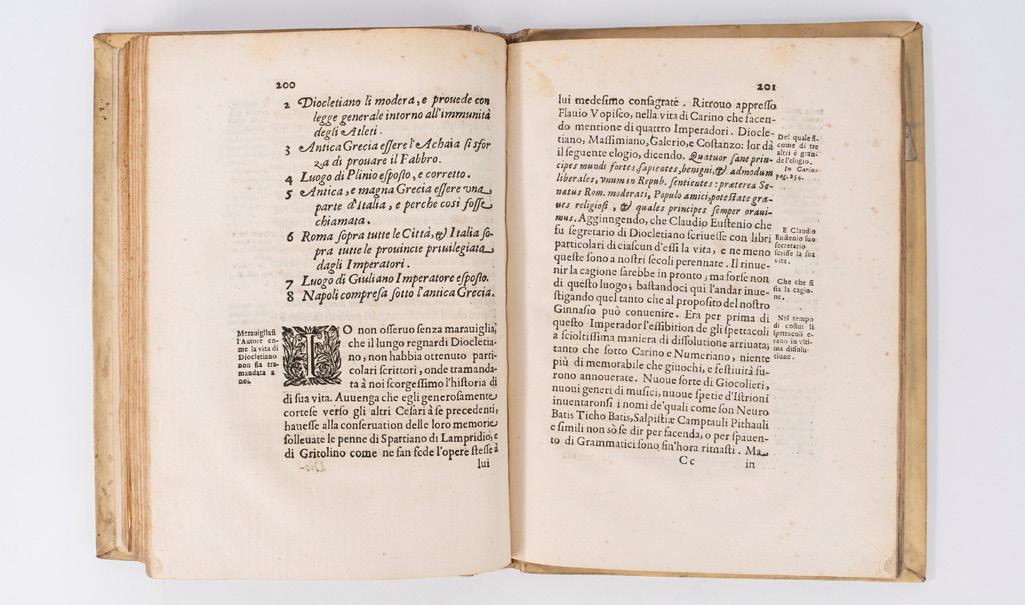 200
2 Diocletiano li modera, e prouede con
legge generale intorno all'immunità
degli Atleti.
3 Antica Grecia essere l'Achaia si sfor
za di prouare il Fabbro.
4 Luogo di Plinio esposto, e corretto.
5 Antica, e magna Grecia essere vna
parte d'Italia, e perche cosi fosse
chiamata.
6 Roma sopra tutte le Città, & Italia so-
pra tutte le prouincie priuilegiata
dagli Imperatori.
7 Luogo di Giuliano Imperatore esposto.
8 Napoli compresa sotto l'antica Grecia.
Merauigliasi
l'Autore co-
me la vita di
Diocletiano
non sia tra-
mandata a
noi.
IO non osseruo senza marauiglia,
che il lungo regnar di Diocletia-
no, non habbia ottenuto parti-
colari scrittori, onde tramanda-
ta à noi scorgessimo l'historia di
di sua vita. Auuenga che egli generosamente
cortese verso gli altri Cesari à se precedenti,
hauesse alla conseruation delle loro memorie
solleuate le penne di Spartiano di Lampridio, e
di Gritolino come ne fan fede l'opere stesse à
lui
201
lui medesimo consagrate. Ritrouo appresso
Flauio Vopisco, nella vita di Carino che facen-
do mentione di quattro Imperadori. Diocle-
tiano, Massimiano, Galerio, e Costanzo: lor dà
il seguente elogio, dicendo. Quatuor sane prin-
cipes mundi fortes, sapientes, benigni, & admodum
liberales, vnum in Repub. sentientes: præterea Se-
natus Rom. moderati, Populo amici, potestate gra-
ues religiosi, & quales principes semper oraui-
mus. Aggiungendo, che Claudio Eustenio che
fu segretario di Diocletiano scriuesse con libri
particolari di ciascun d'essi la vita, e ne meno
queste sono a nostri secoli perennate. Il rinue-
nir la cagione sarebbe in pronto; ma forse non
di questo luogo; bastandoci qui l'andar inue-
stigando quel tanto che al proposito del nostro
Ginnasio può conuenire. Era per prima di
questo Imperador l'essibition de gli spettacoli
a scioltissima maniera di dissolutione arriuata;
tanto che sotto Carino e Numeriano, niente
più di memorabile che giuochi, e festiuità fu-
rono annouerate. Nuoue sorte di Giocolieri,
nuoui generi di musici, nuoue spetie d'Istrioni
inuentaronsi i nomi de'quali come son Neuro
Batis Ticho Batis, Salpistiæ Camptauli Pithauli
e simili non sò se dir per facenda, o per spauen-
to di Grammatici sono sin'hora rimasti. Ma
Cc in
Del quale si-
come di tre
altri è gran-
de l'elogio.
In Carino
pag. 254.
E Claudio
Eustenio suo
secretario
scrisse la sua
vita.
Che che si
sia la cagio-
ne.
Nel tempo
di costui li
spettacoli e-
rano in vlti-
ma dissolu-
tione.